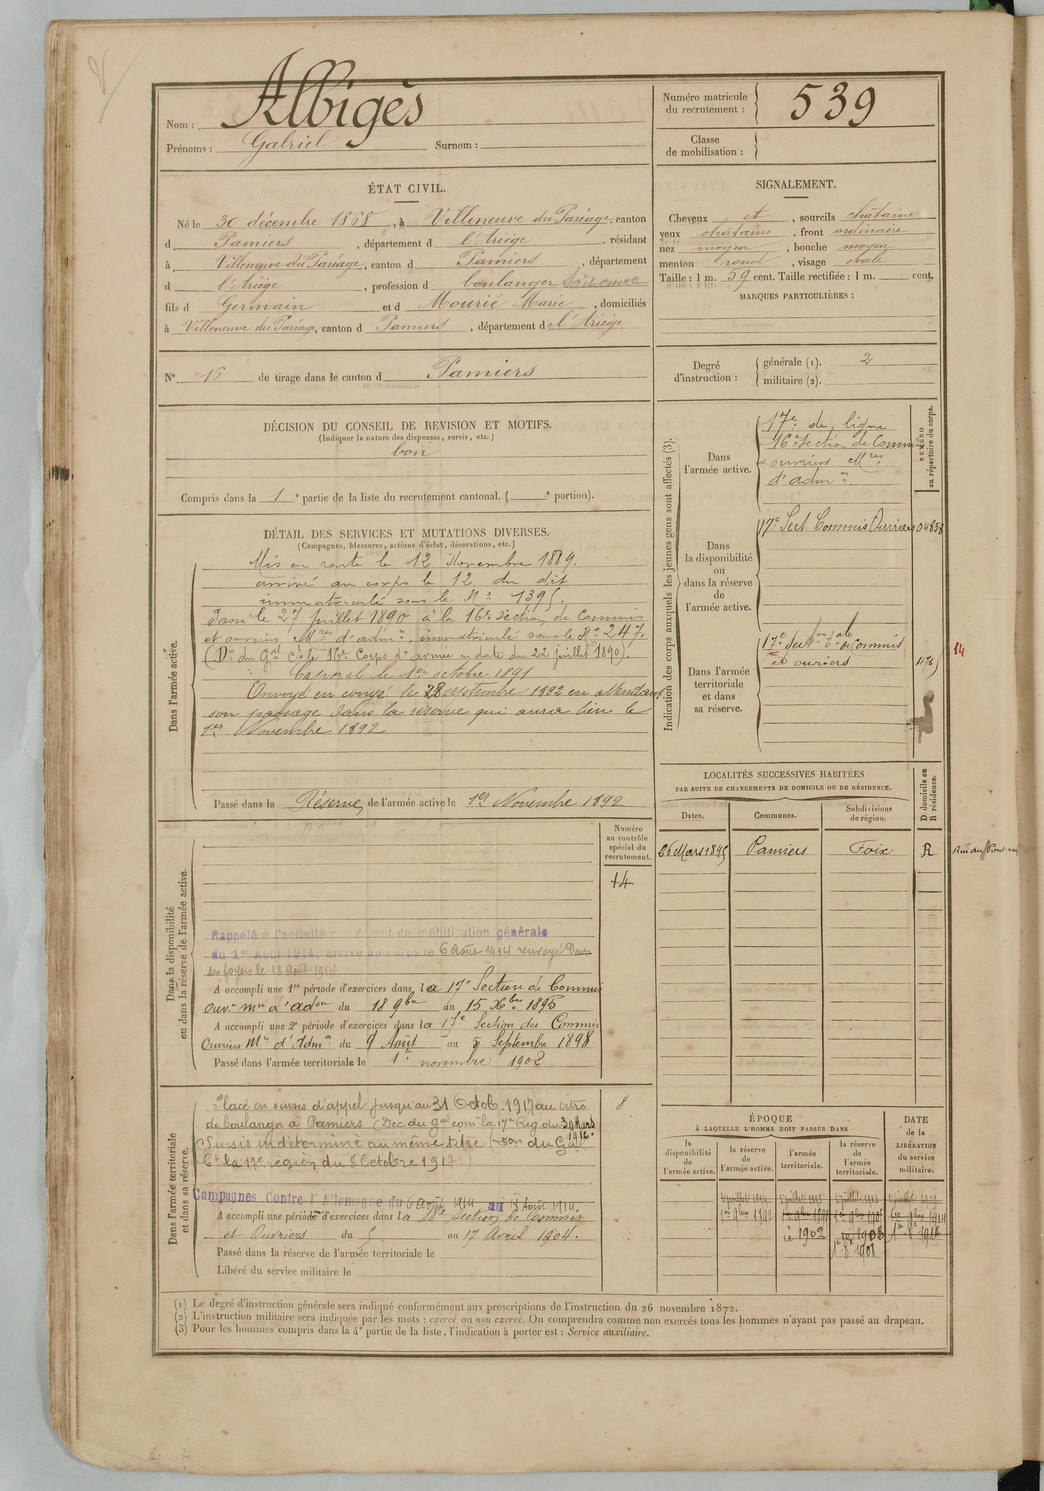 Nom : Albigès
Prénoms : Gabriel Surnom :
Numéro matricule du recrutement : 539
Classe de mobilisation :
ÉTAT CIVIL.
Né le 30 décembre 1868, à Villeneuve du Paréage, canton
d Pamiers, département d l'Ariége, résidant
à Villeneuve du Paréage, canton d Pamiers, département
d l'Ariége, profession d boulanger
fils d Germain et d Mourié Marie, domiciliés
à Villeneuve du Paréage, canton d Pamiers, département d l'Ariége
SIGNALEMENT.
Cheveux et, sourcils châtains
yeux châtains, front ordinaire
nez moyen, bouche moyen
menton rond, visage ovale
Taille : 1 m. 59 cent. Taille rectifiée : 1 m. cent.
MARQUES PARTICULIÈRES :
N° 16 de tirage dans le canton d Pamiers
Degré d'instruction : générale (1). 2
militaire (2).
DÉCISION DU CONSEIL DE REVISION ET MOTIFS.
(Indiquer la nature des dispenses, sursis, etc.)
bon
Compris dans la 1e partie de la liste du recrutement cantonal. ( e portion).
DÉTAIL DES SERVICES ET MUTATIONS DIVERSES.
(Campagnes, blessures, actions d'éclat, décorations, etc.)
Dans l'armée active.
Mis en route le 12 Novembre 1889.
arrivé au corps le 12 du dit
immatriculé sous le N° 1395.
Passé le 27 juillet 1890 à la 16e Section de Commis
et ouvriers Mres d'admon, immatriculé sous le N° 247.
(Don du Gal Ct le 16e Corps d'armée en date du 22 juillet 1890).
Caporal le 1er octobre 1891
Envoyé en congé le 28 septembre 1892 en attendant
son passage dans la réserve qui aura lieu le
1er Novembre 1892
Passé dans la Réserve de l'armée active le 1er Novembre 1892
Indication des corps auxquels les jeunes gens sont affectés (3).
NUMÉRO au répertoire du corps.
Dans l'armée active.
17e de ligne
16e Section de Commis
& ouvriers Mres
d'admn.
Dans la disponibilité ou dans la réserve de l'armée active.
17e Sect. Commis Ouvriers 04858
Dans l'armée territoriale et dans sa réserve.
17e Secton tale de Commis
et ouvriers
14
LOCALITÉS SUCCESSIVES HABITÉES
PAR SUITE DE CHANGEMENTS DE DOMICILE OU DE RÉSIDENCE.
Dates. Communes. Subdivisions de région. D domicile ou R résidence.
26 Mars 1895 Pamiers Foix R
Dans la disponibilité ou dans la réserve de l'armée active.
Numéro au contrôle spécial du recrutement.
14
Rappelé à l'activité par décret de mobilisation générale
du 1er Août 1914, arrivé au corps le 6 Août 1914 renvoyé dans
ses foyers le 18 Août 1914
A accompli une 1re période d'exercices dans la 17e Section de Commis
Ouv. Mre d'Adon du 18 9bre au 15 Xbre 1895
A accompli une 2e période d'exercices dans la 17e Section des Commis
Ouvriers Mre d'Admn du 9 Août au 5 Septembre 1898
Passé dans l'armée territoriale le 1er novembre 1902
Dans l'armée territoriale et dans sa réserve.
8
Placé en sursis d'appel jusqu'au 31 Octob. 1917 au titre
de boulanger à Pamiers (Dec. du Gal com la 17e Rég. du 30 Mars 1916.
Sursis indéterminé au même titre (Don du Gal
Ct la 17e région du 8 Octobre 1917.)
Campagnes Contre l'Allemagne du 6 août 1914 au 18 Août 1914.
A accompli une période d'exercices dans la 18e Section de Commis
et Ouvriers du 5 au 17 Avril 1904.
Passé dans la réserve de l'armée territoriale le
Libéré du service militaire le
ÉPOQUE
À LAQUELLE L'HOMME DOIT PASSER DANS
la disponibilité de l'armée active. la réserve de l'armée active. l'armée territoriale. la réserve de l'armée territoriale.
DATE de la LIBÉRATION du service militaire.
(1) Le degré d'instruction générale sera indiqué conformément aux prescriptions de l'instruction du 26 novembre 1872.
(2) L'instruction militaire sera indiquée par les mots : exercé ou non exercé. On comprendra comme non exercés tous les hommes n'ayant pas passé au drapeau.
(3) Pour les hommes compris dans la 4e partie de la liste, l'indication à porter est : Service auxiliaire.